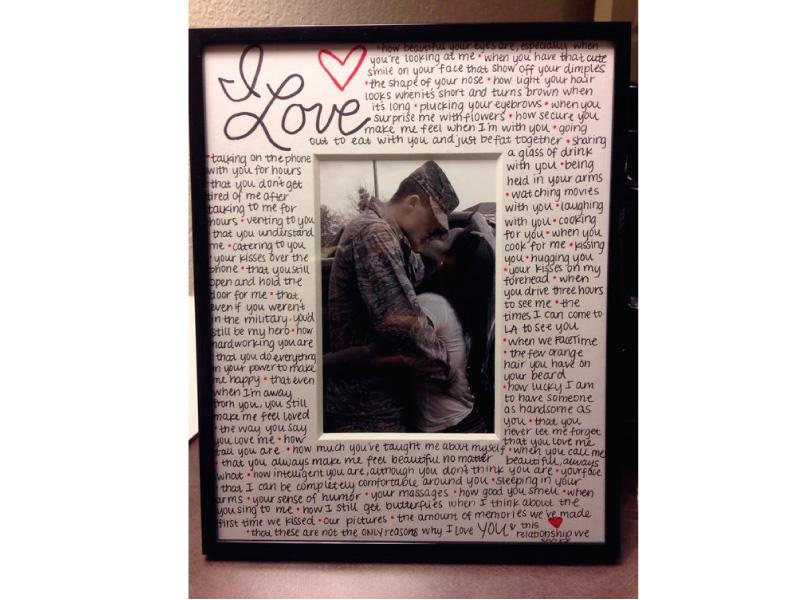 I
Love
• how beautiful your eyes are, especially when
you're looking at me • when you have that cute
smile on your face that show off your dimples
• the shape of your nose • how light your hair
looks when it's short and turns brown when
it's long • plucking your eyebrows • when you
surprise me with flowers • how secure you
make me feel when I'm with you • going
out to eat with you and just be fat together • sharing
• talking on the phone
with you for hours
that you don't get
tired of me after
talking to me for
hours • venting to you
that you understand
me • catering to you
• your kisses over the
phone • that you still
open and hold the
door for me • that
even if you weren't
in the military you'd
still be my hero • how
hardworking you are
that you do everything
in your power to make
me happy • that even
when I'm away
from you, you still
make me feel loved
• the way you say
you love me • how
tall you are
a glass of drink
with you • being
held in your arms
• watching movies
with you • laughing
with you • cooking
for you • when you
cook for me • kissing
you • hugging you
• your kisses on my
forehead • when
you drive three hours
to see me • the
times I can come to
LA to see you
• when we FaceTime
• the few orange
hair you have on
your beard
• how lucky I am
to have someone
as handsome as
you • that you
never let me forget
that you love me
• how much you've taught me about myself • when you call me
• that you always make me feel beautiful no matter beautiful, always
what • how intelligent you are, although you don't think you are • your face
that I can be completely comfortable around you • sleeping in your
arms • your sense of humor • your massages • how good you smell • when
you sing to me • how I still get butterflies when I think about the
first time we kissed • our pictures • the amount of memories we've made
• that these are not the only reasons why I love YOU & this
relationship we
share